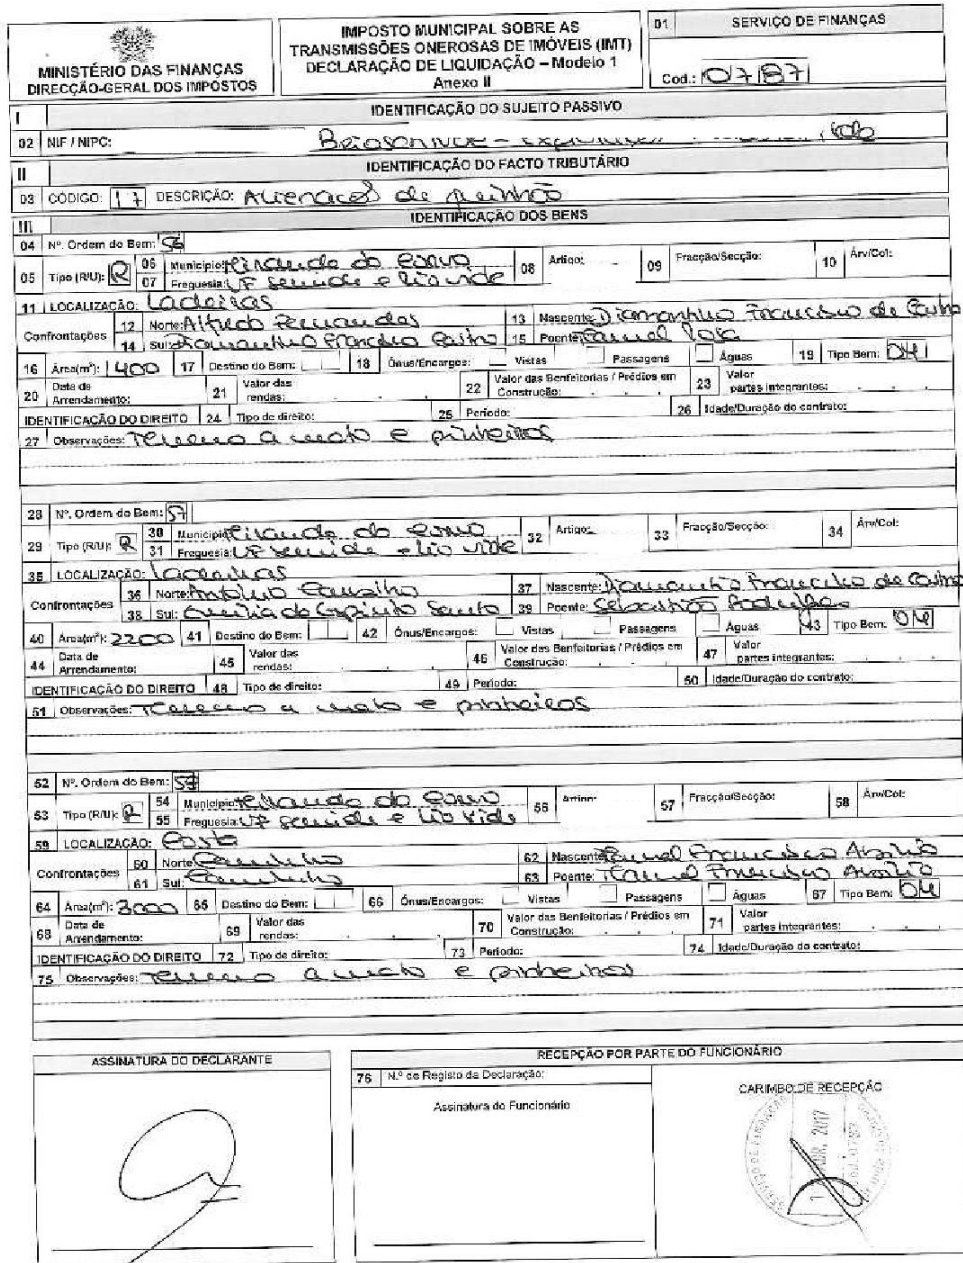 MINISTÉRIO DAS FINANÇAS
DIRECÇÃO-GERAL DOS IMPOSTOS
IMPOSTO MUNICIPAL SOBRE AS
TRANSMISSÕES ONEROSAS DE IMÓVEIS (IMT)
DECLARAÇÃO DE LIQUIDAÇÃO – Modelo 1
Anexo II
01 SERVIÇO DE FINANÇAS
Cod.: 0787
I IDENTIFICAÇÃO DO SUJEITO PASSIVO
02 NIF / NIPC:
II IDENTIFICAÇÃO DO FACTO TRIBUTÁRIO
03 CÓDIGO: 17 DESCRIÇÃO: Alienação de quinhão
III IDENTIFICAÇÃO DOS BENS
04 Nº. Ordem do Bem: 56
05 Tipo (R/U): R 06 Município: Miranda do Corvo 08 Artigo: 09 Fracção/Secção: 10 Árv/Col:
07 Freguesia: UF Semide e Rio Vide
11 LOCALIZAÇÃO: Ladeiras
Confrontações 12 Norte: Alfredo Fernandes 13 Nascente: Diamantino Francisco de Castro
14 Sul: Diamantino Francisco Castro 15 Poente: Manuel Rosa
16 Área(m²): 1400 17 Destino do Bem: 18 Ónus/Encargos: Vistas Passagens Águas 19 Tipo Bem: OM
20 Data de Arrendamento: 21 Valor das rendas: 22 Valor das Benfeitorias / Prédios em Construção: 23 Valor partes integrantes:
IDENTIFICAÇÃO DO DIREITO 24 Tipo de direito: 25 Período: 26 Idade/Duração do contrato:
27 Observações: Terreno a mato e pinheiros
28 Nº. Ordem do Bem: 57
29 Tipo (R/U): R 30 Município: Miranda do Corvo 32 Artigo: 33 Fracção/Secção: 34 Árv/Col:
31 Freguesia: UF Semide e Rio Vide
35 LOCALIZAÇÃO: Ladeiras
Confrontações 36 Norte: António Carvalho 37 Nascente: Diamantino Francisco de Castro
38 Sul: Emília do Espírito Santo 39 Poente: Sebastião Rodrigues
40 Área(m²): 2200 41 Destino do Bem: 42 Ónus/Encargos: Vistas Passagens Águas 43 Tipo Bem: OM
44 Data de Arrendamento: 45 Valor das rendas: 46 Valor das Benfeitorias / Prédios em Construção: 47 Valor partes integrantes:
IDENTIFICAÇÃO DO DIREITO 48 Tipo de direito: 49 Período: 50 Idade/Duração do contrato:
51 Observações: Terreno a mato e pinheiros
52 Nº. Ordem do Bem:
53 Tipo (R/U): R 54 Município: Miranda do Corvo 56 Artigo: 57 Fracção/Secção: 58 Árv/Col:
55 Freguesia: UF Semide e Rio Vide
59 LOCALIZAÇÃO: Costa
Confrontações 60 Norte: Caminho 62 Nascente: Manuel Francisco
61 Sul: Caminho 63 Poente: Manuel Francisco
64 Área(m²): 3000 65 Destino do Bem: 66 Ónus/Encargos: Vistas Passagens Águas 67 Tipo Bem: OM
68 Data de Arrendamento: 69 Valor das rendas: 70 Valor das Benfeitorias / Prédios em Construção: 71 Valor partes integrantes:
IDENTIFICAÇÃO DO DIREITO 72 Tipo de direito: 73 Período: 74 Idade/Duração do contrato:
75 Observações: Terreno a mato e pinheiros
ASSINATURA DO DECLARANTE
RECEPÇÃO POR PARTE DO FUNCIONÁRIO
76 N.º de Registo da Declaração:
Assinatura do Funcionário
CARIMBO DE RECEPÇÃO
2017